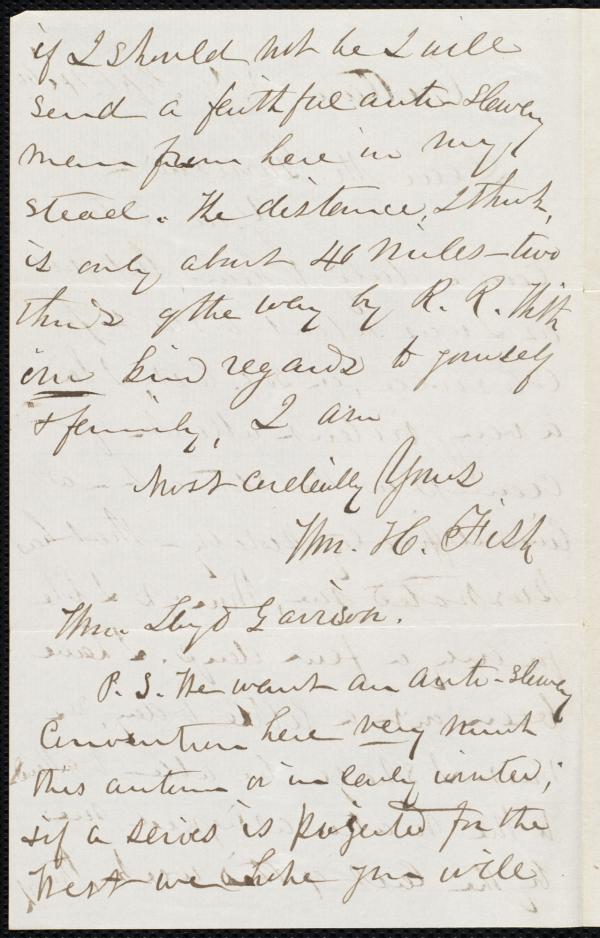 if I should not be I will
send a faithful anti-slavery
man from here in my
stead. The distance, I think,
is only about 46 miles - two
thirds of the way by R. R. With
our kind regards to yourself
& family, I am
Most cordially Yours
Wm. H. Fish
Wm. Lloyd Garrison.
P. S. We want an anti-slavery
Convention here very much
this autumn or in early winter;
& if a series is projected for the
West we hope you will